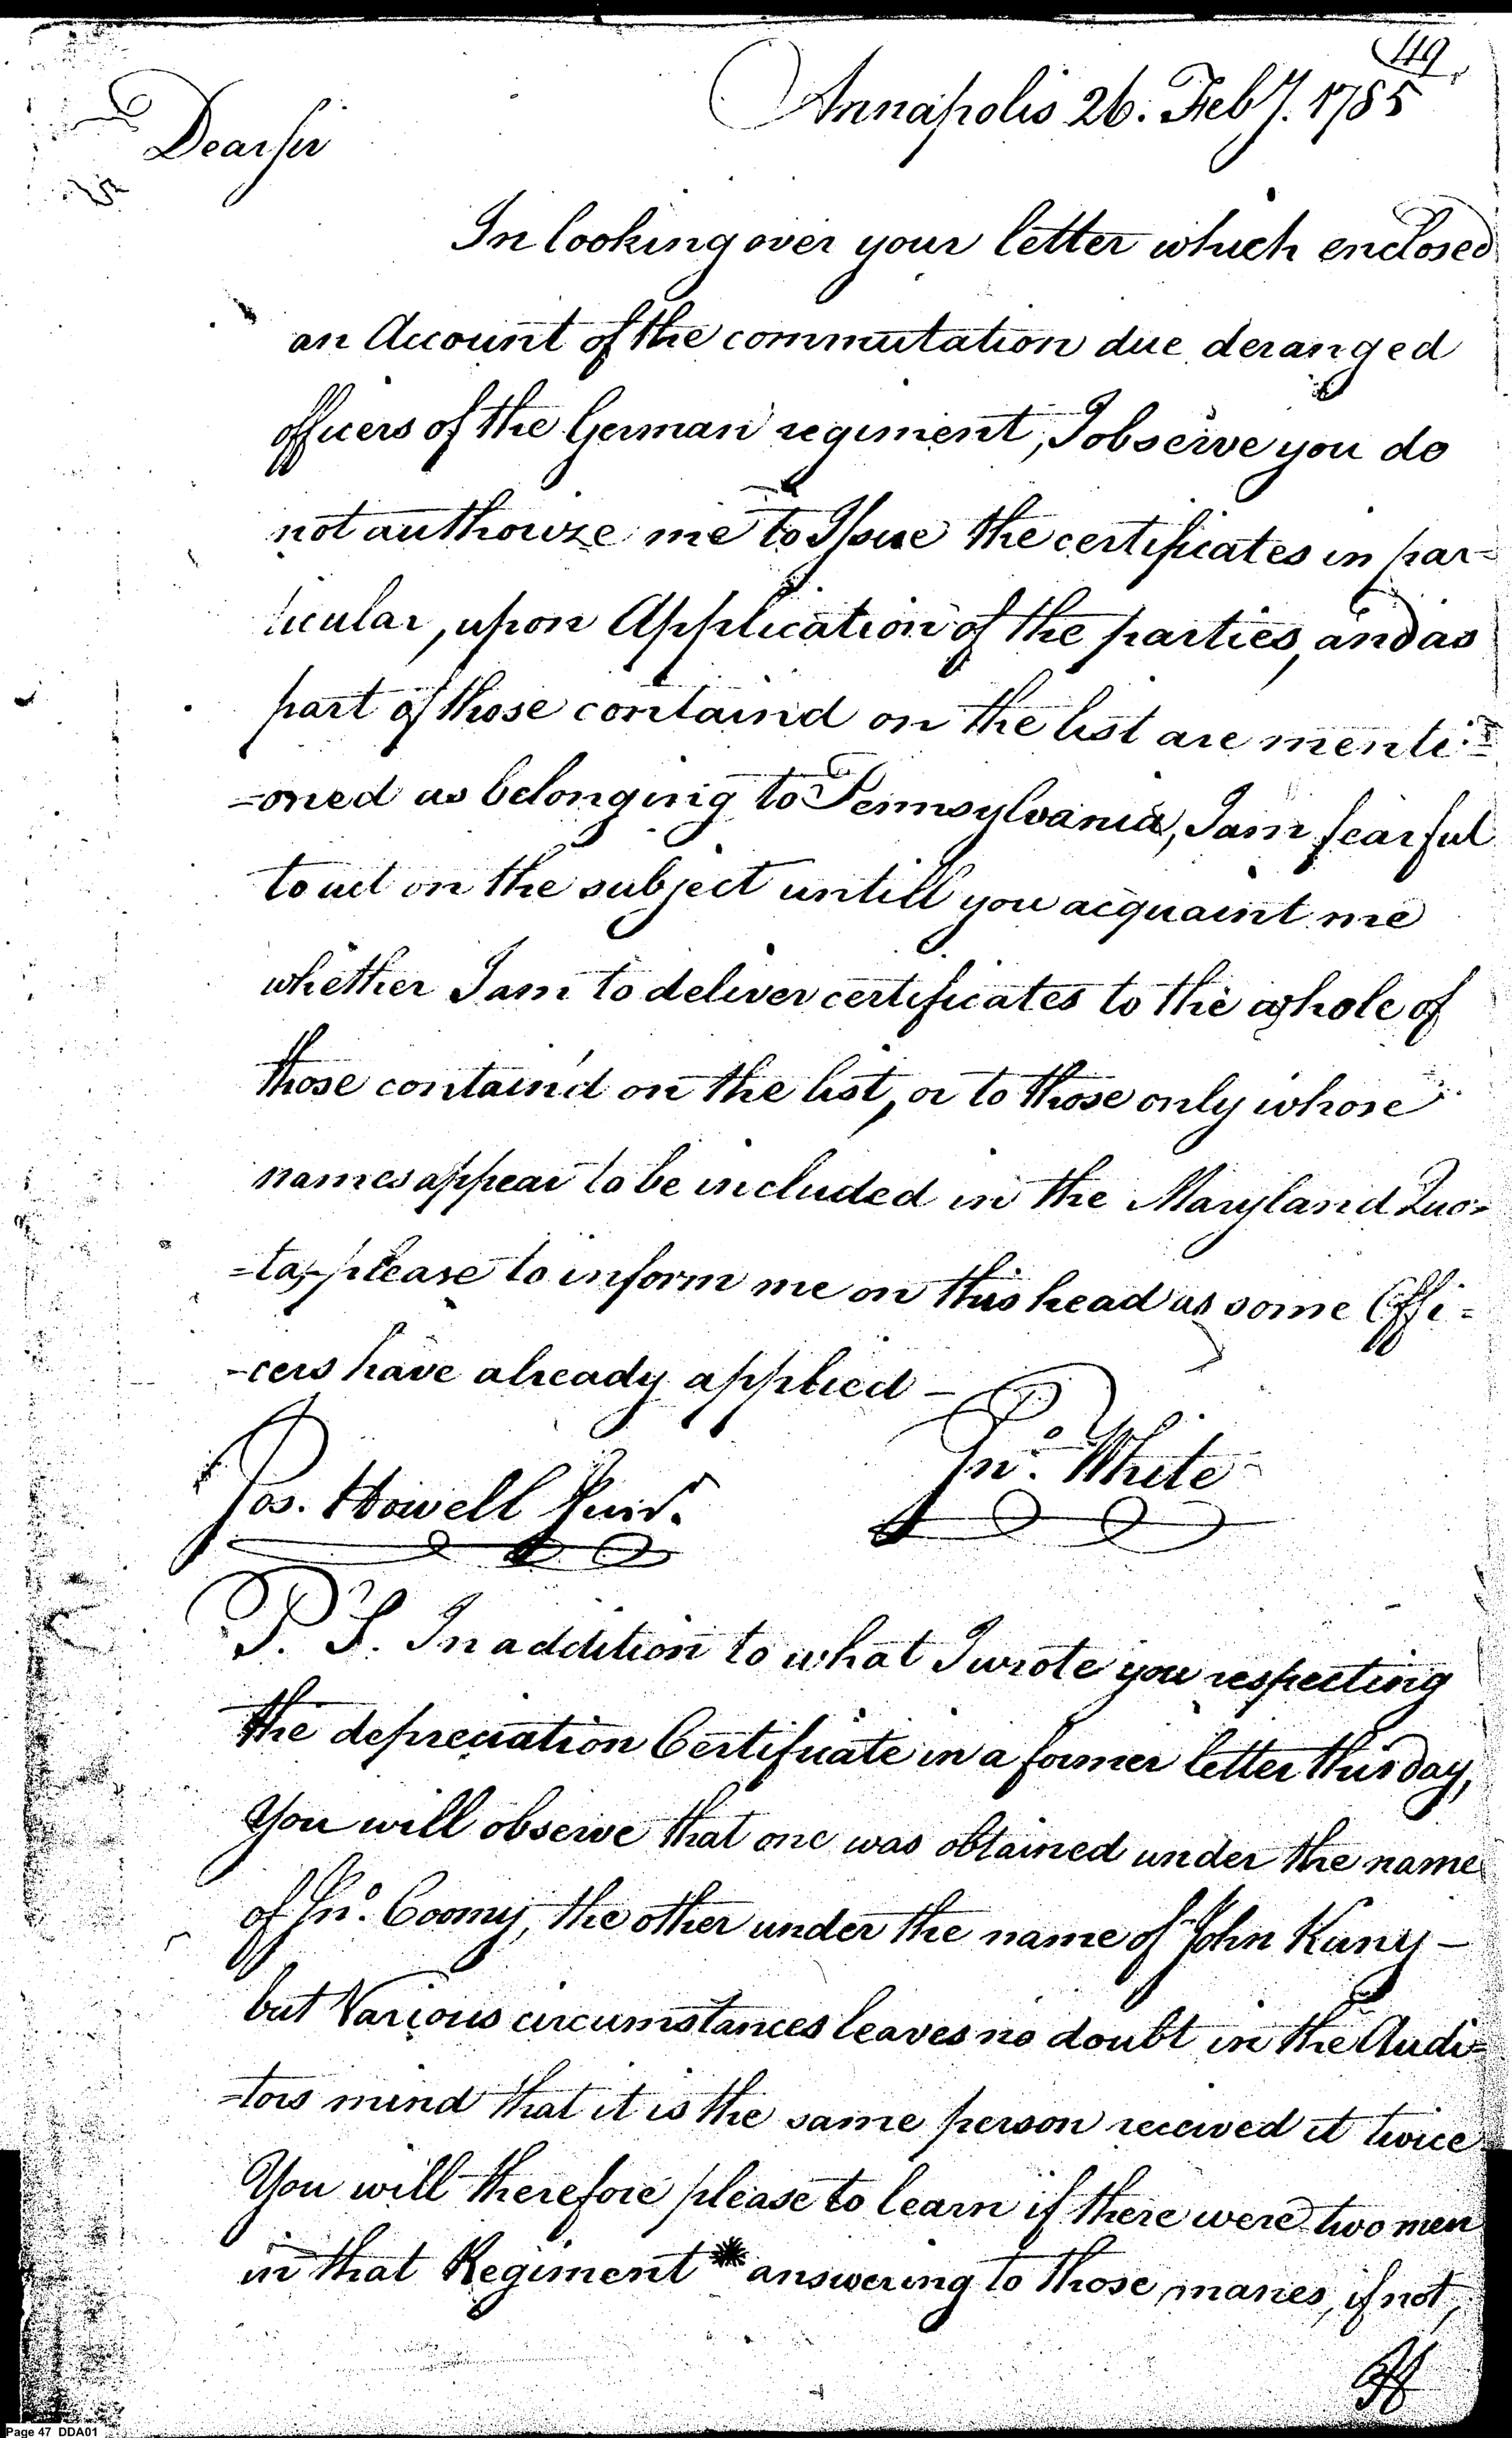 49
Annapolis 26. Feby. 1785
Dear sir
In looking over your letter which enclosed
an Account of the commutation due deranged
officers of the German regiment, I observe you do
not authorize me to Issue the certificates in par-
ticular, upon Application of the parties, and as
part of those containd on the list are menti-
-oned as belonging to Pennsylvania, I am fearful
to act on the subject untill you acquaint me
whether I am to deliver certificates to the whole of
those contain'd on the list, or to those only whose
names appear to be included in the Maryland Quo=
=ta, - please to inform me on this head as some Offi=
-cers have already applied -
Jno. White
Jos. Howell Junr.
P. S. In addition to what I wrote you respecting
the depreciation Certificate in a former letter this day,
You will observe that one was obtained under the name
of Jno. Coomy, the other under the name of John Kuny -
but Various circumstances leaves no doubt in the Audi=
=tors mind that it is the same person received it twice
You will therefore please to learn if there were two men
in that Regiment * answering to those manes, if not,
If
Page 47 DDA01